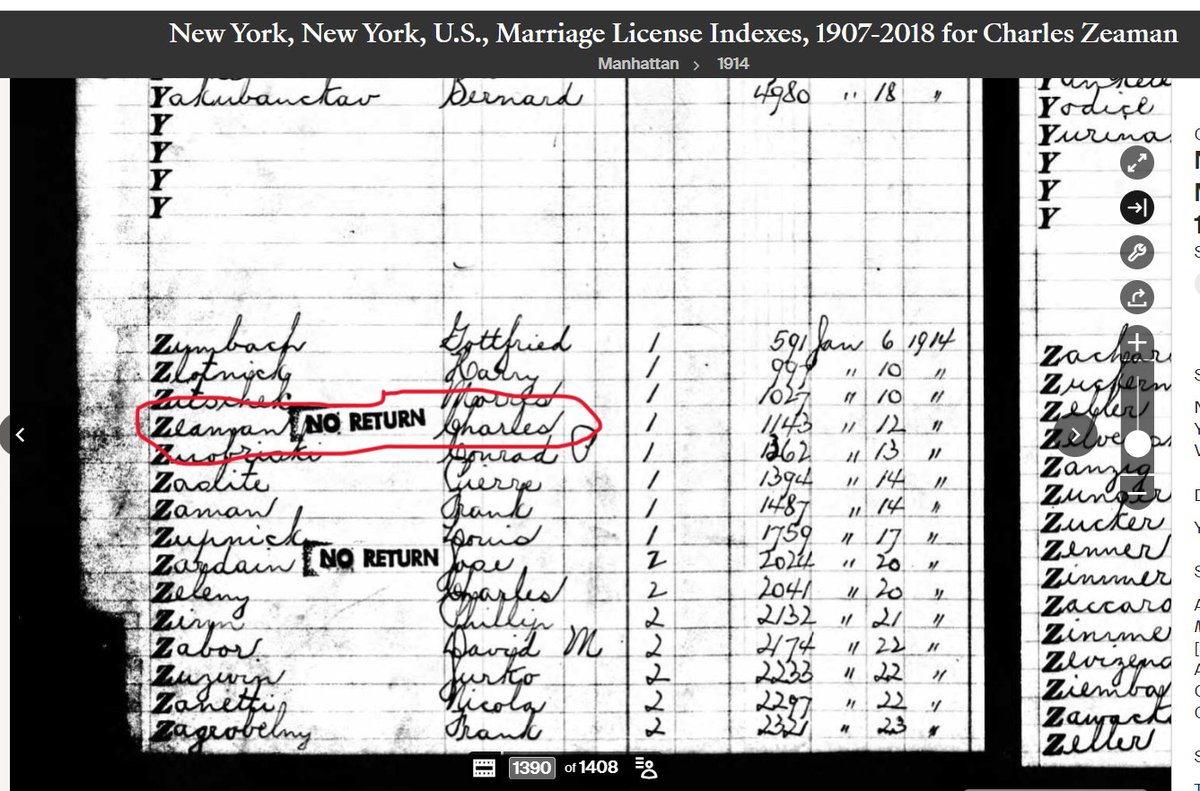 New York, New York, U.S., Marriage License Indexes, 1907-2018 for Charles Zeaman
Manhattan > 1914
Yakubanckav Bernard 4980 " 18 "
Y
Y
Y
Y
Zumbach Gottfried 1 591 Jan 6 1914
Zlotnicky Harry 1 " 10 "
Morris 1 1027 " 10 "
NO RETURN Charles 1 1143 " 12 "
Conrad P 1 1362 " 13 "
Zaslite Pierre 1 1394 " 14 "
Zaman Frank 1 1487 " 14 "
Zupnick Louis 1 1759 " 17 "
Zardain NO RETURN Jose 2 2024 " 20 "
Zeleny Charles 2 2041 " 20 "
Phillip 2 2132 " 21 "
Zabor David M 2 2174 " 22 "
2 2233 " 22 "
Zanetti Nicola 2 2297 " 22 "
Zagrobelny Frank 2 2321 " 23 "
Yodice
Y
Y
Y
Zeller
Zanzig
Zunger
Zucker
Zenner
Zimmer
Zaccaro
Zimme
Zeller
1390 of 1408